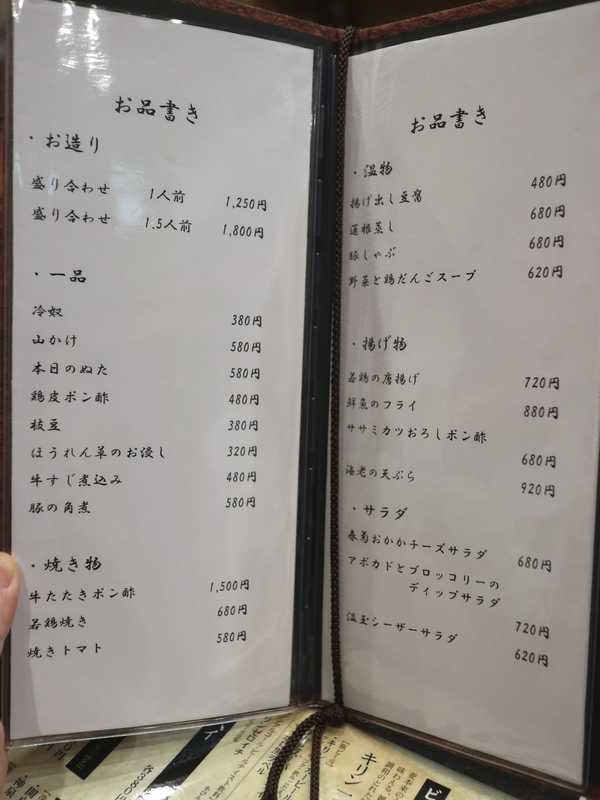 お品書き
・お造り
盛り合わせ 1人前 1,250円
盛り合わせ 1.5人前 1,800円
・一品
冷奴 380円
山かけ 580円
本日のぬた 580円
鶏皮ポン酢 480円
枝豆 380円
ほうれん草のお浸し 320円
牛すじ煮込み 480円
豚の角煮 580円
・焼き物
牛たたきポン酢 1,500円
若鶏焼き 680円
焼きトマト 580円
お品書き
・温物
揚げ出し豆腐 480円
蓮根蒸し 680円
豚しゃぶ 680円
野菜と鶏だんごスープ 620円
・揚げ物
若鶏の唐揚げ 720円
鮮魚のフライ 880円
ササミカツおろしポン酢
680円
海老の天ぷら 920円
・サラダ
春菊おかかチーズサラダ 680円
アボカドとブロッコリーの
ディップサラダ
720円
温玉シーザーサラダ 620円
キリン